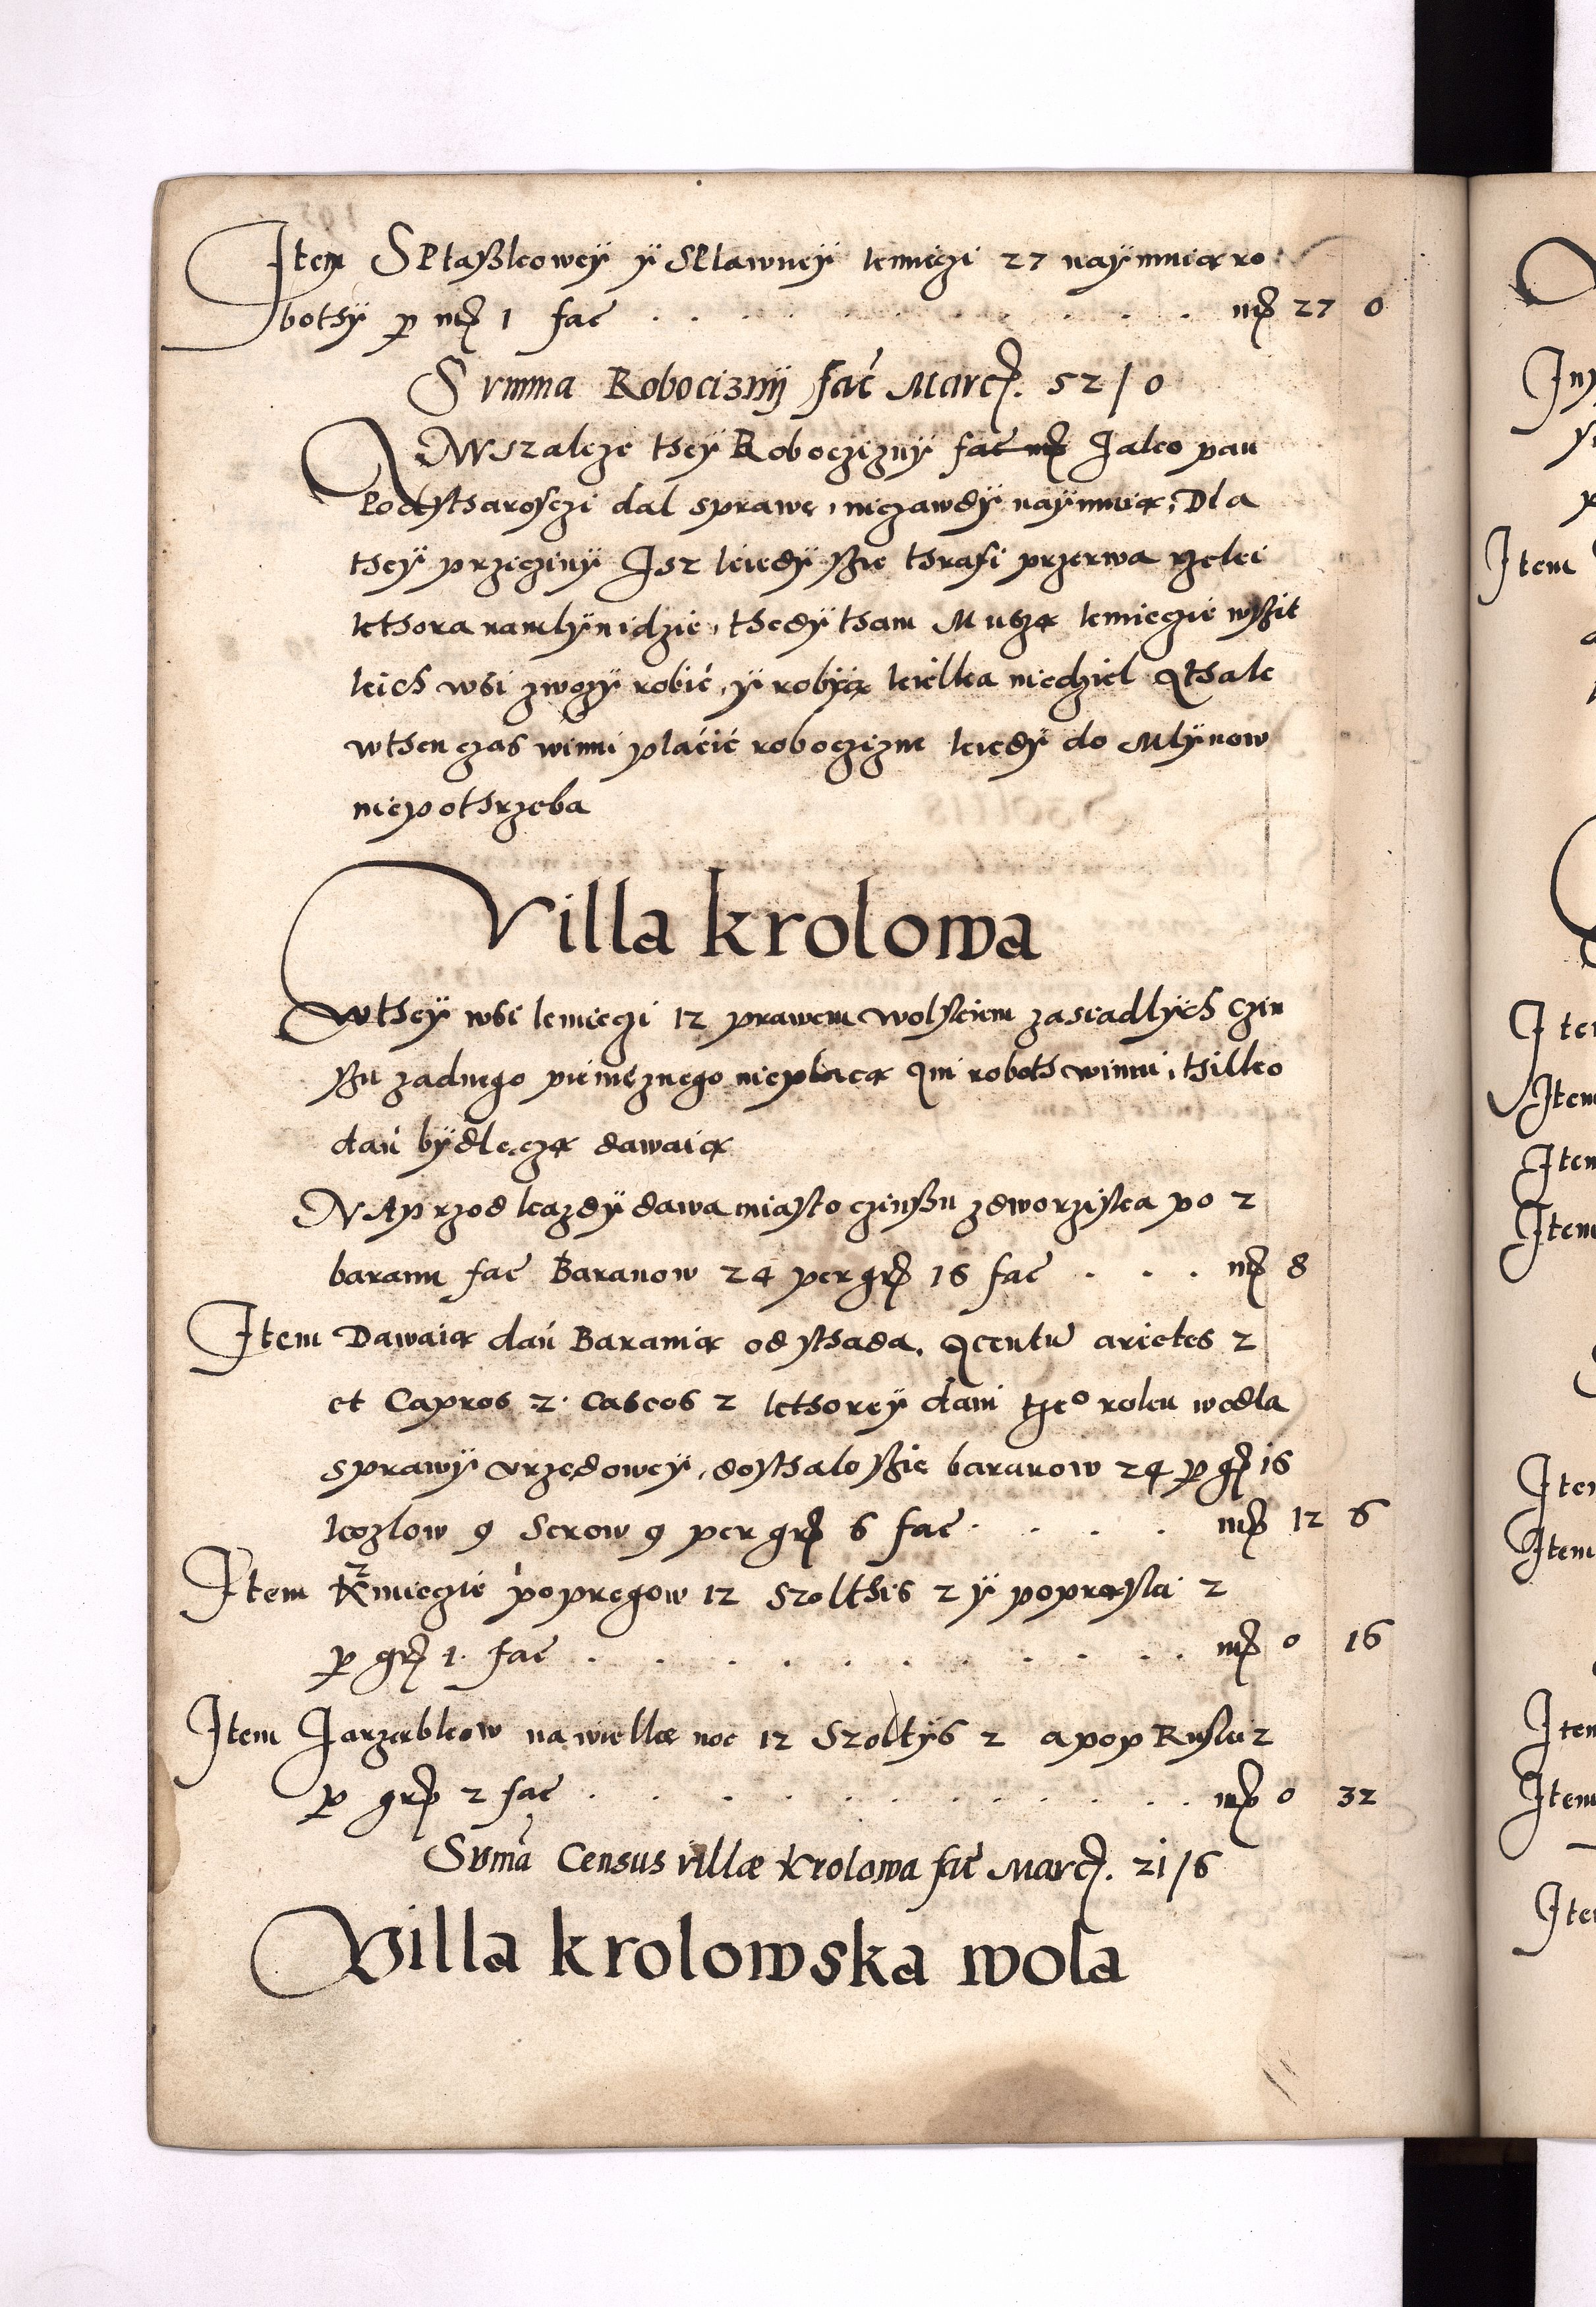 Item S Ptaßkowey y Sławney kmieczi 27 naymuią ro
bothy p mrc 1 fac . . . . . . . . . . mrc 27 0
Summa Robocizny fac Marc. 52/0
Wszakze they Roboczizny fac mrc Jako pan
Podstharosczi dal sprawe, niezawdy naymuią, Dla
they przicziny Isz kiedy sßie thrafi przerwa rzeki
kthora namlyn idzie, thedy tham Muszą kmieczie wßit
kich wsi zwozy robić, y robyią kielka niedziel Athak
wthen czas winni płacić roboczizne kiedy do Mlynow
niepothrzeba
Villa krolowa
Wthey wsi kmieczi 12 prawem wolyskiem zasiadlych Czin
ßu zadnego pienięznego niepłacą Ani roboth winni, thilko
dań bydleczą dawaią
Naprzod kazdy dawa miasto czinßu zdworziska po 2
baranu fac Baranow 24 per gr 16 fac . . . mrc 8
Item Dawaią dań Baranią od sthada. Acentu arietes 2
et Capros 2. Caseos 2 kthorey dani tgo roku wedla
sprawy urzędowey, dosthalo sßie baranow 24 p gr 16
kozlow 9 Serow 9 per gr 6 fac . . . . mrc 12 6
Item Kmieczie popregow 12 Szolthis 2 y popraski 2
p gr 1. fac . . . . . . . . . . mrc 0 16
Item Jarząbkow na wielkæ noc 12 Szoltys 2 a pop Ruski 2
p gr 2 fac . . . . . . . . . . mrc 0 32
Suma Census villæ Krolowa fac Marc. 21/6
Villa krolowska wola
Item
Item
Item
Item
Item
Item
Item
Item
Item